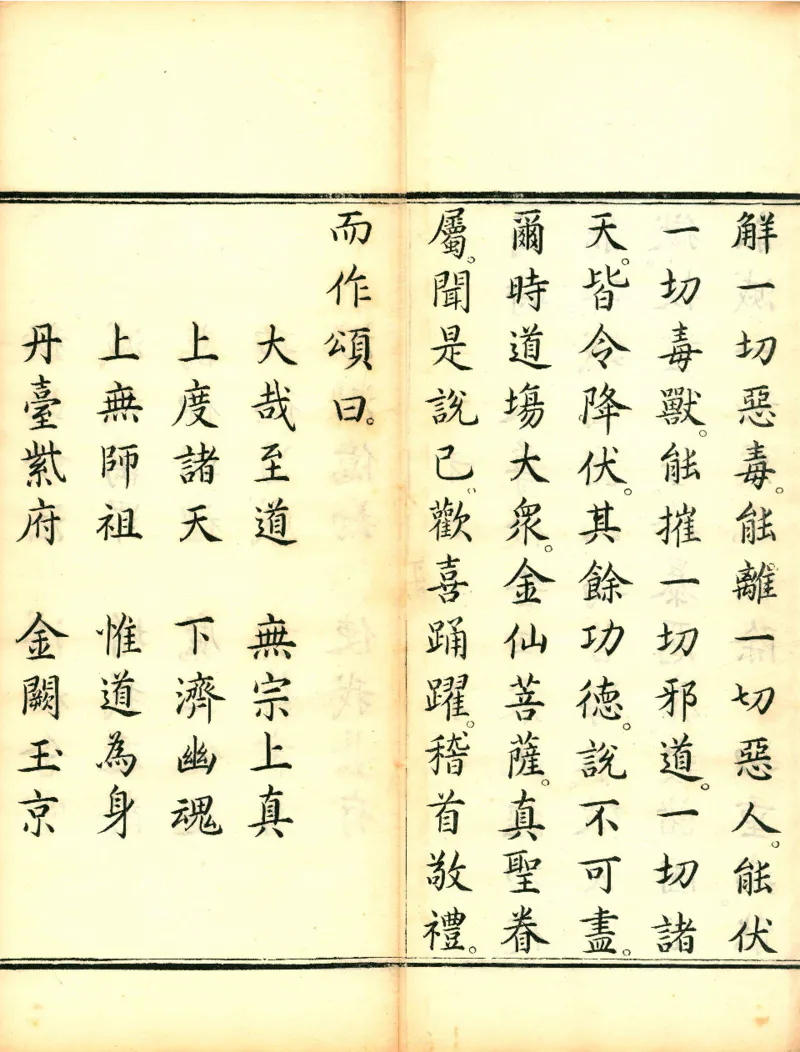 解一切惡毒。能離一切惡人。能伏
一切毒獸。能摧一切邪道。一切諸
天。皆令降伏。其餘功德。說不可盡。
爾時道塲大衆。金仙菩薩。真聖眷
屬。聞是說已。歡喜踊躍。稽首敬禮。
而作頌曰。
大哉至道　無宗上真
上度諸天　下濟幽魂
上無師祖　惟道為身
丹臺紫府　金闕玉京